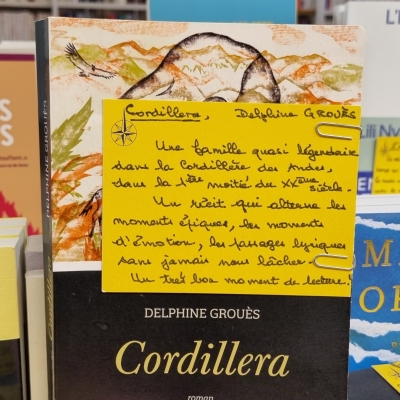 Cordillera, Delphine GROUÈS
Une famille quasi légendaire
dans la Cordillère des Andes,
dans la 1ère moitié du XXème siècle.
Un récit qui alterne les
moments épiques, les moments
d'émotion, les passages lyriques
sans jamais nous lâcher.
Un très bon moment de lecture!
DELPHINE GROUÈS
Cordillera
roman
DELPHINE GROUÈS
Cordillera